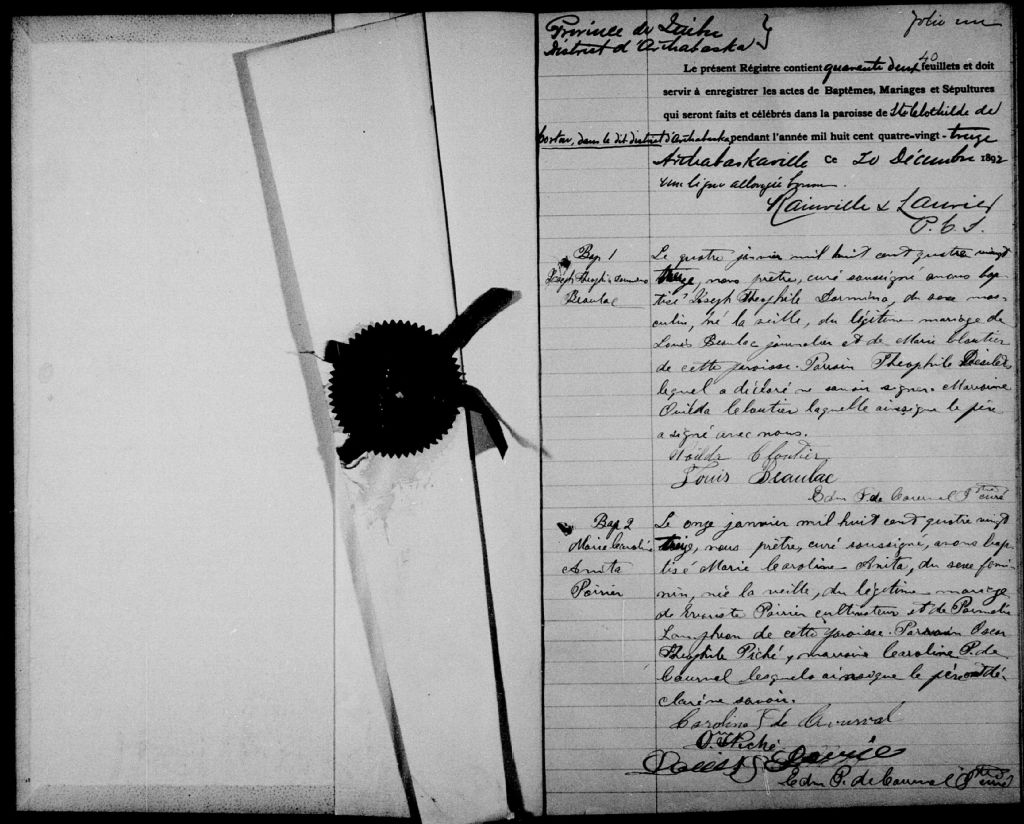 folio un
Province de Québec
District d'Arthabaska
Le présent Régistre contient quarante deux feuillets et doit
40
servir à enregistrer les actes de Baptêmes, Mariages et Sépultures
qui seront faits et célébrés dans la paroisse de Ste Clothilde de
Horton, dans le dit district d'Arthabaska, pendant l'année mil huit cent quatre-vingt-treize
Arthabaskaville Ce 20 Décembre 1892
une ligne allongée bonne.
Rainville & Laurier
P. C. S.
Bap. 1
Joseph Theoph.
Beaulac
Le quatre janvier mil huit cent quatre vingt
treize, nous prêtre, curé soussigné avons bap
tisé Joseph Théophile Darmina, du sexe mas-
culin, né la veille, du légitime mariage de
Louis Beaulac journalier et de Marie Cloutier
de cette paroisse. Parrain Théophile Désilets
lequel a déclaré ne savoir signer. Marraine
Ouilda Cloutier laquelle ainsi que le père
a signé avec nous.
Cloutier
Louis Beaulac
Edm P. de Courval Ptre curé
Bap 2
Marie Caroline
Anita
Poirier
Le onze janvier mil huit cent quatre vingt
treize, nous prêtre, curé soussigné, avons bap-
tisé Marie Caroline Anita, du sexe fémi-
nin, née la veille, du légitime mariage
de Evariste Poirier cultivateur et de
de cette paroisse. Parrain Oscar
Théophile Piché, marraine Caroline P. de
Courval lesquels ainsi que le père ont dé-
claré savoir.
Caroline P de Courval
O. Piché
Edm P. de Courval Ptre curé